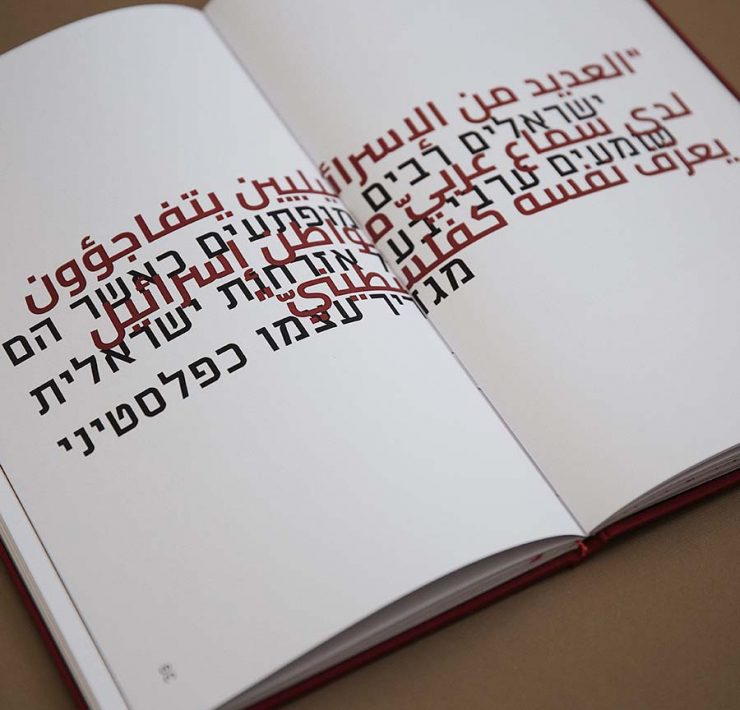 "العديد من الاسرائيليين يتفاجؤون
ישראלים רבים מופתעים כאשר הם
لدى سماع عربيّ مواطن اسرائيل
שומעים ערבי בעל אזרחות ישראלית
يعرف نفسه كفلسطينيّ"
מגדיר עצמו כפלסטיני